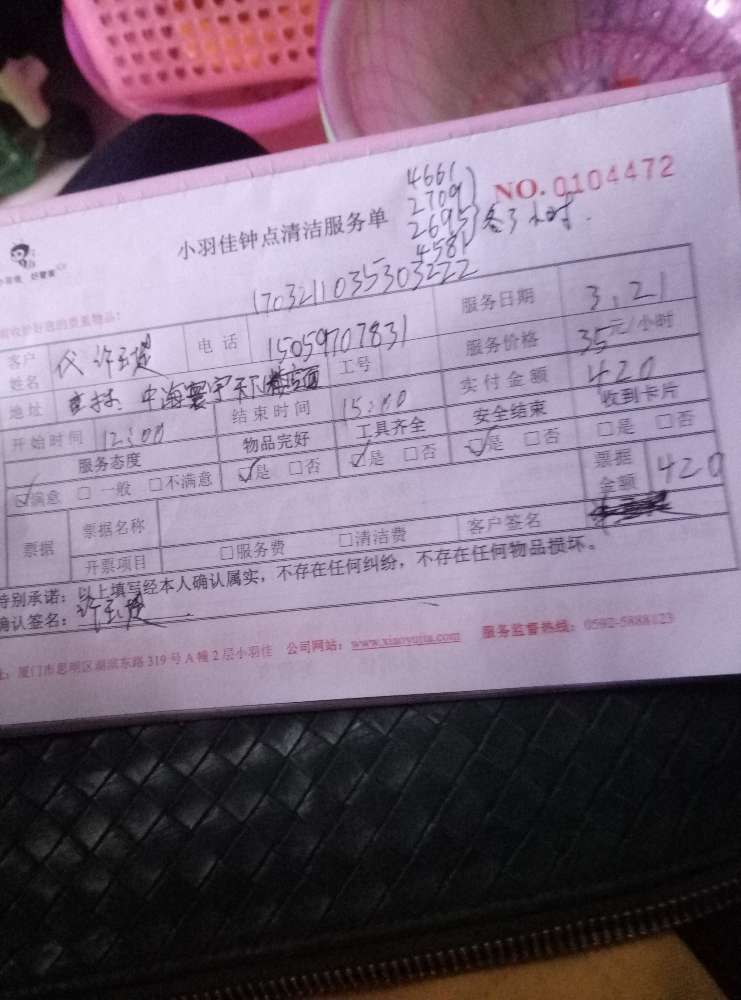 4661
NO. 0104472
2709
2695 各3小时.
小羽佳钟点清洁服务单
4581
好管家
1703211035303222
客户姓名 许 电话 15059707831 服务日期 3.21
地址 中海寰宇天下 工号 服务价格 35元/小时
开始时间 12:00 结束时间 15:00 实付金额 420
服务态度 物品完好 工具齐全 安全结束 收到卡片
☑满意 □一般 □不满意 ☑是 □否 ☑是 □否 ☑是 □否 □是 □否
票据 票据名称 票据金额 420
开票项目 □服务费 □清洁费 客户签名
特别承诺：以上填写经本人确认属实，不存在任何纠纷，不存在任何物品损坏。
确认签名：许
厦门市思明区湖滨东路319号A幢2层小羽佳 公司网站：www.xiaoyujia.com 服务监督热线：0592-5888123